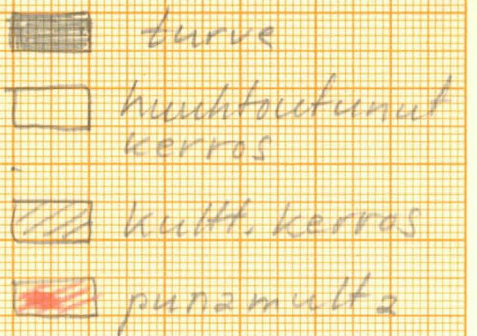 turve
huuhtoutunut
kerros
kultt. kerros
punamulta